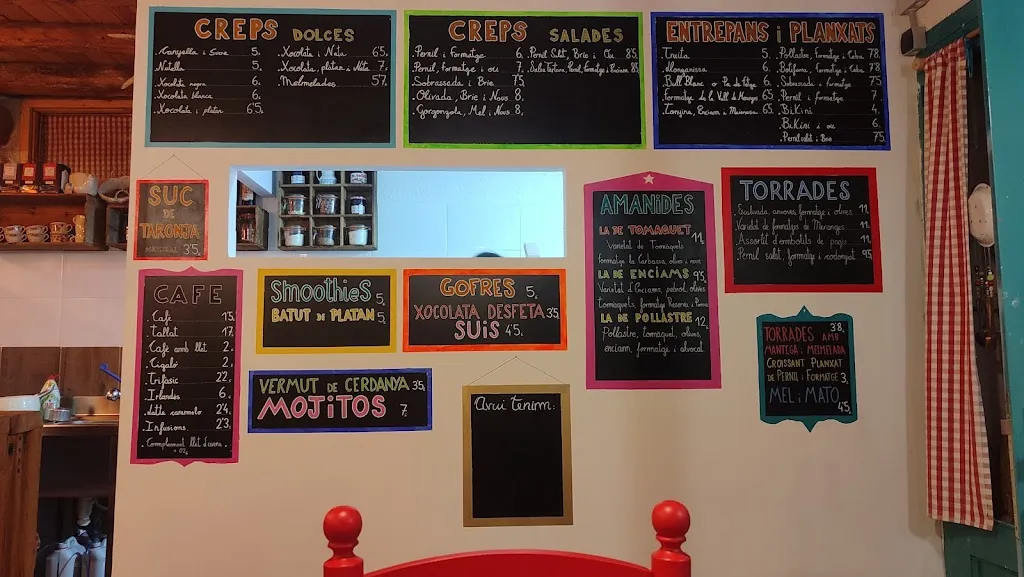 CREPS DOLCES
Canyella i Sucre 5,
Nutella 5,
Xocolata negra 6,
Xocolata blanca 6,
Xocolata i platan 6'5,
Xocolata i Nata 6'5,
Xocolata, platan i Nata 7,
Melmelades 5'7,
CREPS SALADES
Pernil i Formatge 6,
Pernil, formatge i ou 7,
Sobrassada i Brie 7'5
Olivada, Brie i Nous 8,
Gorgonzola, Mel i Nous 8,
Pernil Salt, Brie i Ou 8'5,
ENTREPANS i PLANXATS
Truita 5,
Llonganissa 6,
Bull Blanc o Pa de fetge 6,
Formatge de la Vall de Meranges 6'5
Tonyina, Enciam i Maionesa 6'5,
Pollastre, Formatge i Ceba 7'8
Botifarra, Formatge i Ceba 7'8
Sobrassada i formatge 7'5
Pernil i formatge 7
BiKini 4,
BiKini i ou 6,
Pernil salat i Brie 7'5
SUC
DE
TARONJA
NATURAL 3'5,
CAFE
Café 1'5,
Tallat 1'7,
Café amb llet 2,
Cigaló 2,
Trifasic 2'2,
Irlandes 6,
Latte caramelo 2'4,
Infusions 2'3,
Complement llet d'avena
SmoothieS 5,
BATUT DE PLATAN 5,
GOFRES 5,
XOCOLATA DESFETA 3'5
SUiS 4'5,
VERMUT DE CERDANYA 3'5,
MOJiTOS 7,
Avui Tenim:
AMANiDES
LA DE TOMAQUET 11,
Varietat de Tomàquets
Formatge la Carbassa, olives i nous
LA DE ENCIAMS 9'5,
Varietat d'Enciams, pebrot, olives
tomàquets, formatge Reserva i Poma
LA DE POLLASTRE 12,
Pollastre, tomàquet, olives,
enciam, formatge i alvocat
TORRADES
Escalivada, anxoves, formatge i olives 11,
Varietat de formatges de Meranges 11,
Assortit d'embotits de pagès 11,
Pernil salat, formatge i codonyat 9'5,
TORRADES AMB 3'8,
MANTEGA i MELMELADA
CROISSANT PLANXAT
DE PERNIL i FORMATGE 3,
MEL i MATO
4'5,